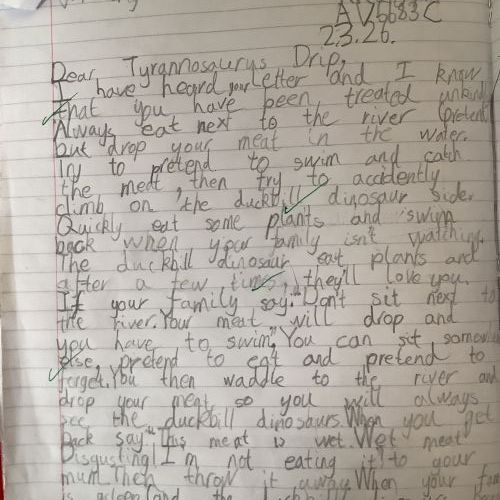 AV5683C
2.3.26.
Dear Tyrannosaurus Drip,
I have heard your letter and I know
that you have been treated unkind
Always eat next to the river pretent
but drop your meat in the water.
Try to pretend to swim and catch
the meat, then try to accidently
climb on the duckbill dinosaur side.
Quickly eat some plants and swim
back when your family isn't watching.
The duckbill dinosaur eat plants and
after a few times, they'll love you.
If your family say: "Don't sit next to
the river. Your meat will drop and
you have to swim." You can sit somewh
else, pretend to eat and pretend to
forget. You then waddle to the river and
drop your meat so you will always
see the duckbill dinosaurs. When you get
back say "This meat is wet. Wet meat
Disgusting! I'm not eating it! to your
mum. Then throw it away. When your fam
is asleep, and the